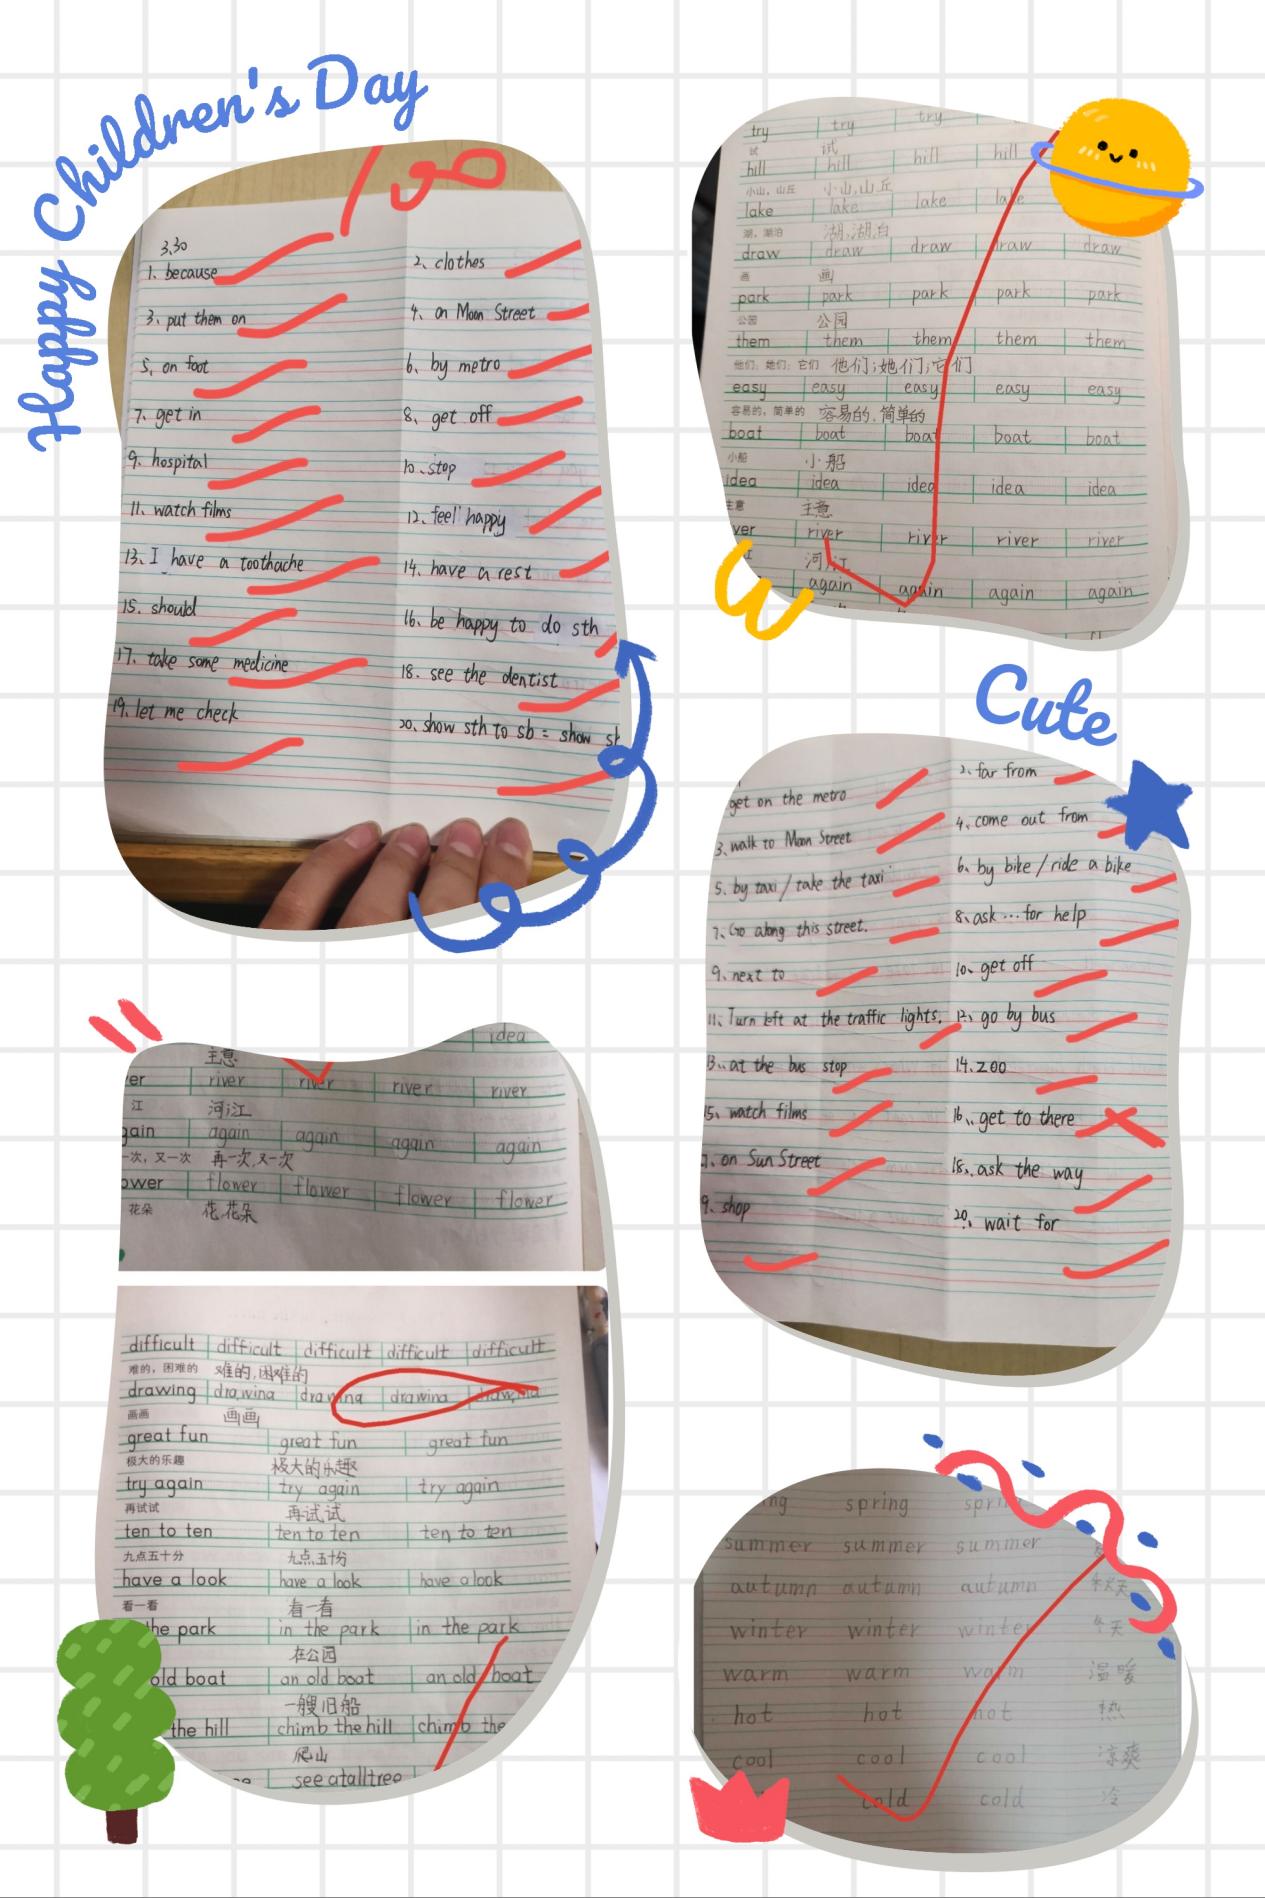 Happy Children's Day
100
3.30
1. because
2. clothes
3. put them on
4. on Moon Street
5. on foot
6. by metro
7. get in
8. get off
9. hospital
10. stop
11. watch films
12. feel happy
13. I have a toothache
14. have a rest
15. should
16. be happy to do sth
17. take some medicine
18. see the dentist
19. let me check
20. show sth to sb = show
try try try
试 试
hill hill hill hill
小山,山丘 小山,山丘
lake lake lake lake
湖,湖泊
draw draw draw draw draw
画 画
park park park park park
公园 公园
them them them them them
他们; 她们; 它们 他们;她们;它们
easy easy easy easy easy
容易的, 简单的 容易的,简单的
boat boat boat boat boat
小船 小船
idea idea idea idea idea
主意 主意
ver river river river river
江 河,江
again again again again
Cute
get on the metro
2. far from
3. walk to Moon Street
4. come out from
5. by taxi / take the taxi
6. by bike / ride a bike
7. Go along this street.
8. ask ... for help
9. next to
10. get off
11. Turn left at the traffic lights.
12. go by bus
13. at the bus stop
14. zoo
15. watch films
16. get to there
on Sun Street
18. ask the way
9. shop
20. wait for
idea
主意
er river river river river
江 河,江
gain again again again again
一次, 又一次 再一次,又一次
ower flower flower flower flower
花朵 花,花朵
difficult difficult difficult difficult difficult
难的, 困难的 难的,困难的
drawing drawing drawing drawing
画画 画画
great fun great fun great fun
极大的乐趣 极大的乐趣
try again try again try again
再试试 再试试
ten to ten ten to ten ten to ten
九点五十分 九点五十分
have a look have a look have a look
看一看 看一看
the park in the park in the park
在公园
old boat an old boat an old boat
一艘旧船
the hill chimb the hill chimb the
爬山
see a tall tree
ing spring
summer summer summer
autumn autumn autumn 秋天
winter winter winter 冬天
warm warm warm 温暖
hot hot hot 热
cool cool cool 凉爽
cold cold 冷